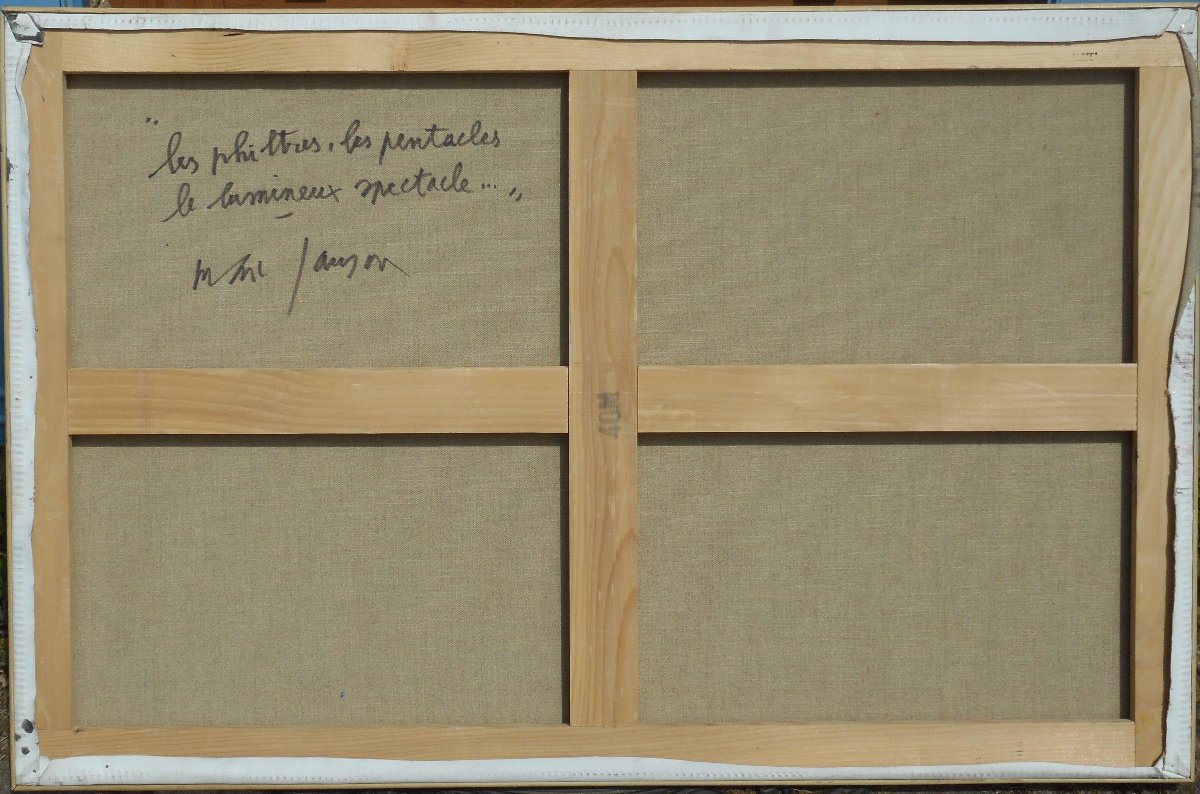 " les philtres, les pentacles
le lumineux spectacle... "
Janson
40M